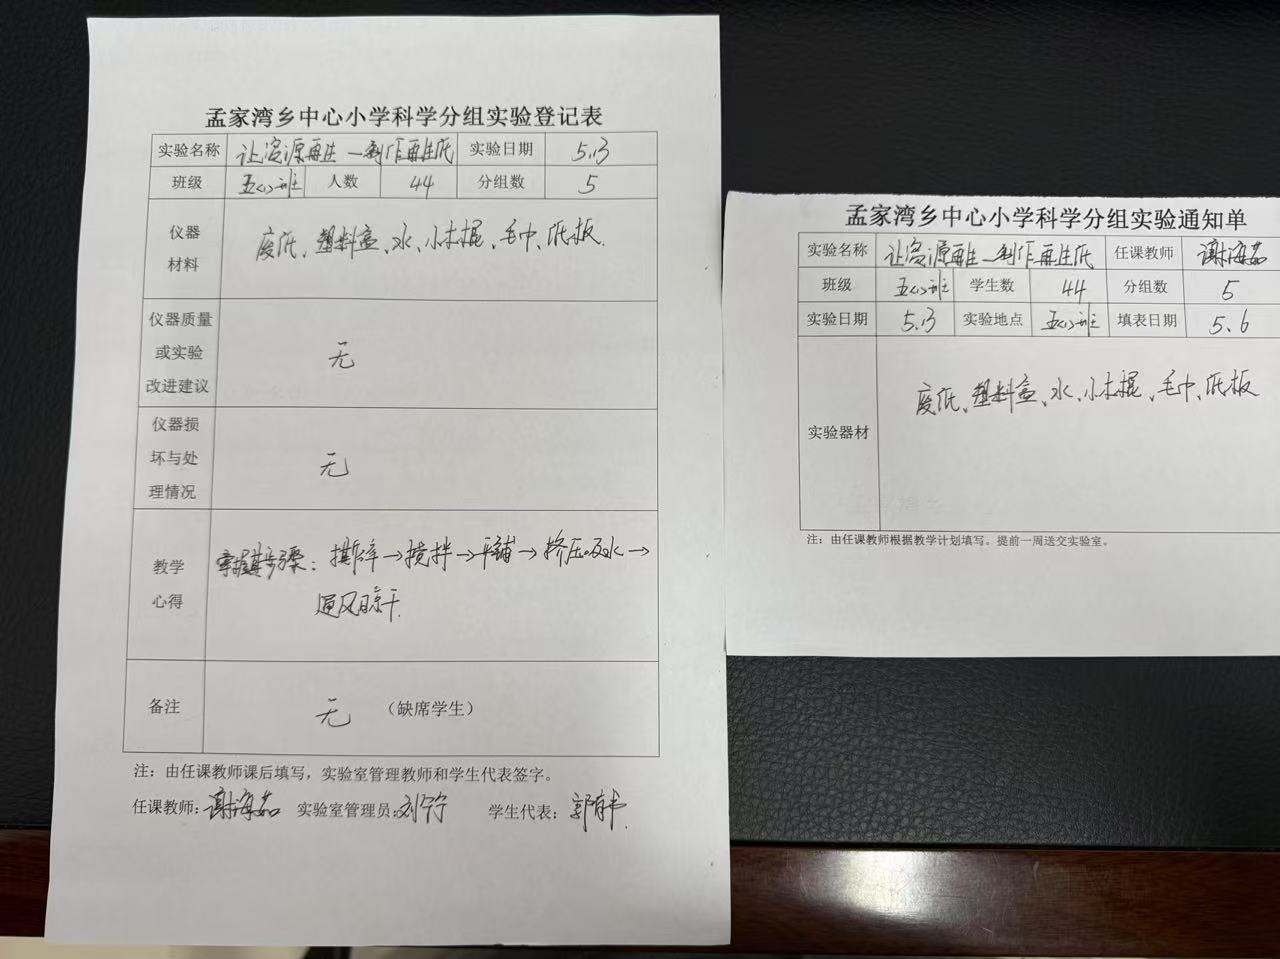 孟家湾乡中心小学科学分组实验登记表
实验名称 让资源再生—制作再生纸 实验日期 5.13
班级 五(1)班 人数 44 分组数 5
仪器
材料
废纸、塑料盒、水、小木棍、毛巾、纸板.
仪器质量
或实验
改进建议
无
仪器损
坏与处
理情况
无
教学
心得
掌握其步骤：撕碎→搅拌→平铺→挤压吸水→
通风晾干.
备注 无 （缺席学生）
注：由任课教师课后填写，实验室管理教师和学生代表签字。
任课教师：谢海茹 实验室管理员：刘宁宁 学生代表：
孟家湾乡中心小学科学分组实验通知单
实验名称 让资源再生—制作再生纸 任课教师 谢海茹
班级 五(1)班 学生数 44 分组数 5
实验日期 5.13 实验地点 五(1)班 填表日期 5.6
实验器材
废纸、塑料盒、水、小木棍、毛巾、纸板
注：由任课教师根据教学计划填写。提前一周送交实验室。